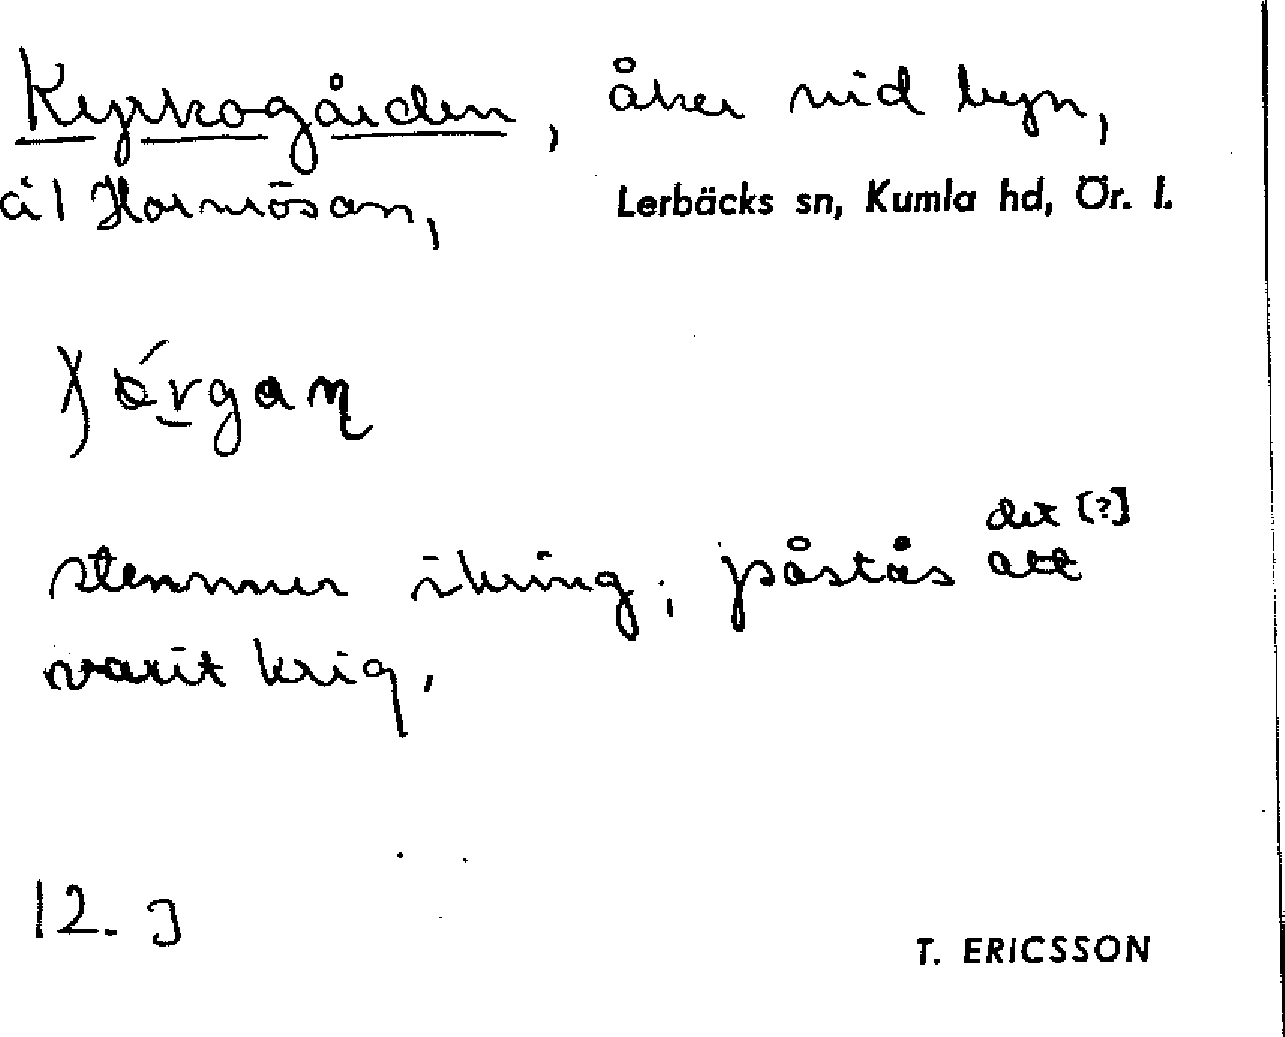 Kyrkogården, åker vid byn,
å1 Hormösan, Lerbäcks sn, Kumla hd, Ör. l.
det [?]
stenmur ikring; påstås att
varit krig,
12. J
T. ERICSSON